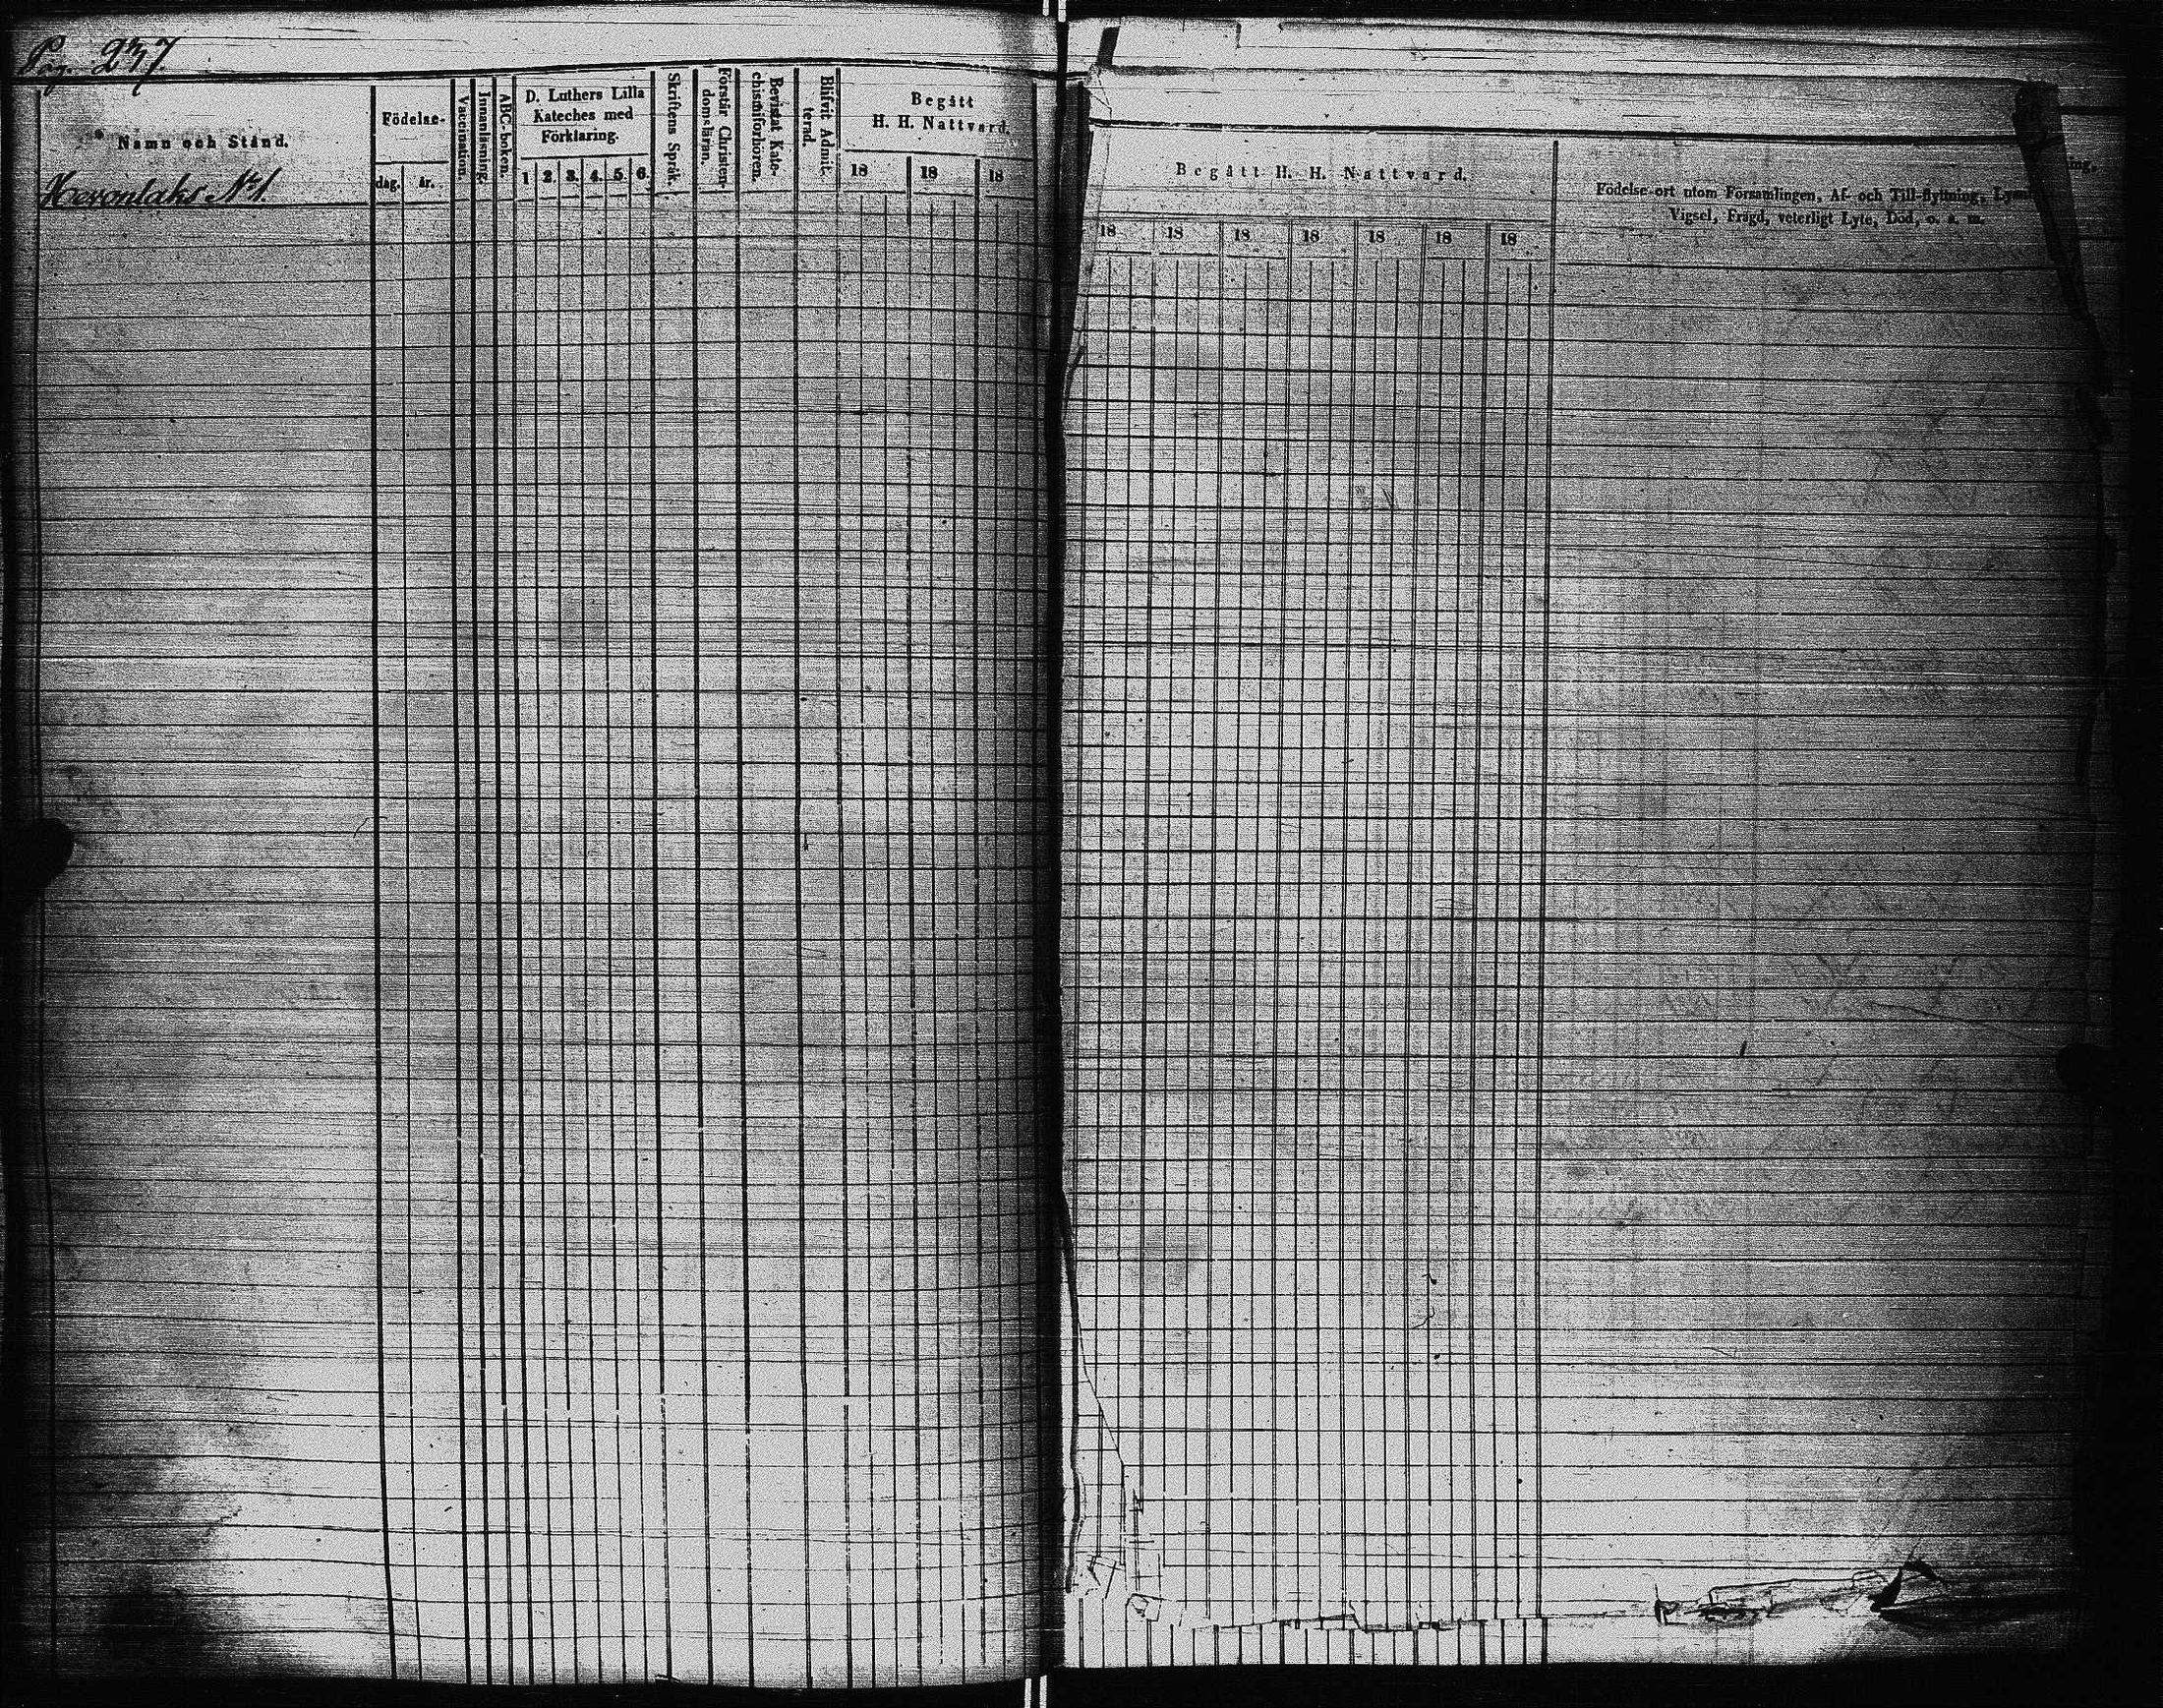 Pag. 237.
Namn och Stånd.
Hevonlaks No 1.
Födelse-
dag. år.
Vaccination.
Innanläsning.
ABC-boken.
D. Luthers Lilla
Kateches med
Förklaring.
1 2. 3. 4. 5. 6.
Skriftens Språk.
Förstår Christen-
domsläran.
Bevistat Kate-
chismiförhören.
Blifvit Admit-
terad.
Begått
H. H. Nattvard.
18 18 18
Begått H. H. Nattvard.
18 18 18 18 18 18 18
Födelse-ort utom Församlingen, Af- och Till-flyttning,
Vigsel, Frägd, veterligt Lyte, Död, o. s. m.